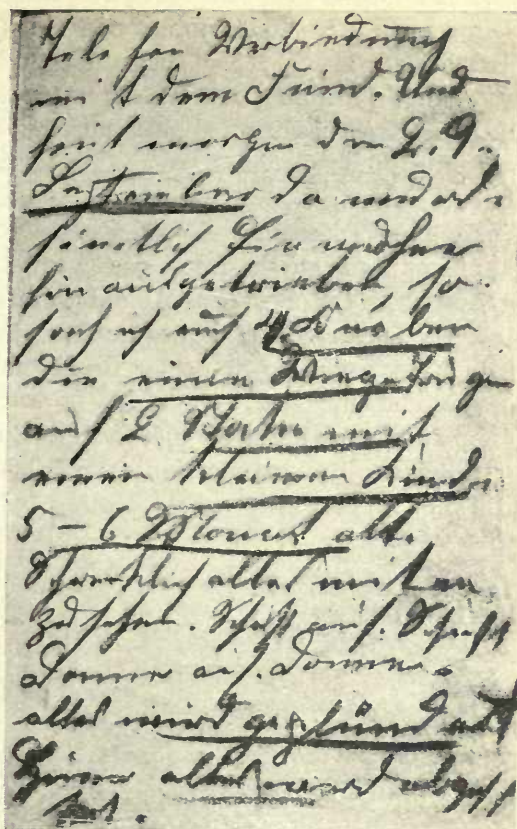 Telefon Verbiedung
mit dem Feind. Und
heut morgen den 2.9.
da wurde
sämtlich Einwohner
hin aufgetrieben, so
sach ich auch 4 Knaben
die einen Wiege tragen
auf 2 Stabe mit
einen kleinen Kinde
5 – 6 Monat alt.
Schrecklich alles mit an
zu sehen. Schuß auf. Schuß
Donner auf. Donner.
alles wird geplündert
Hüner alles wird abge